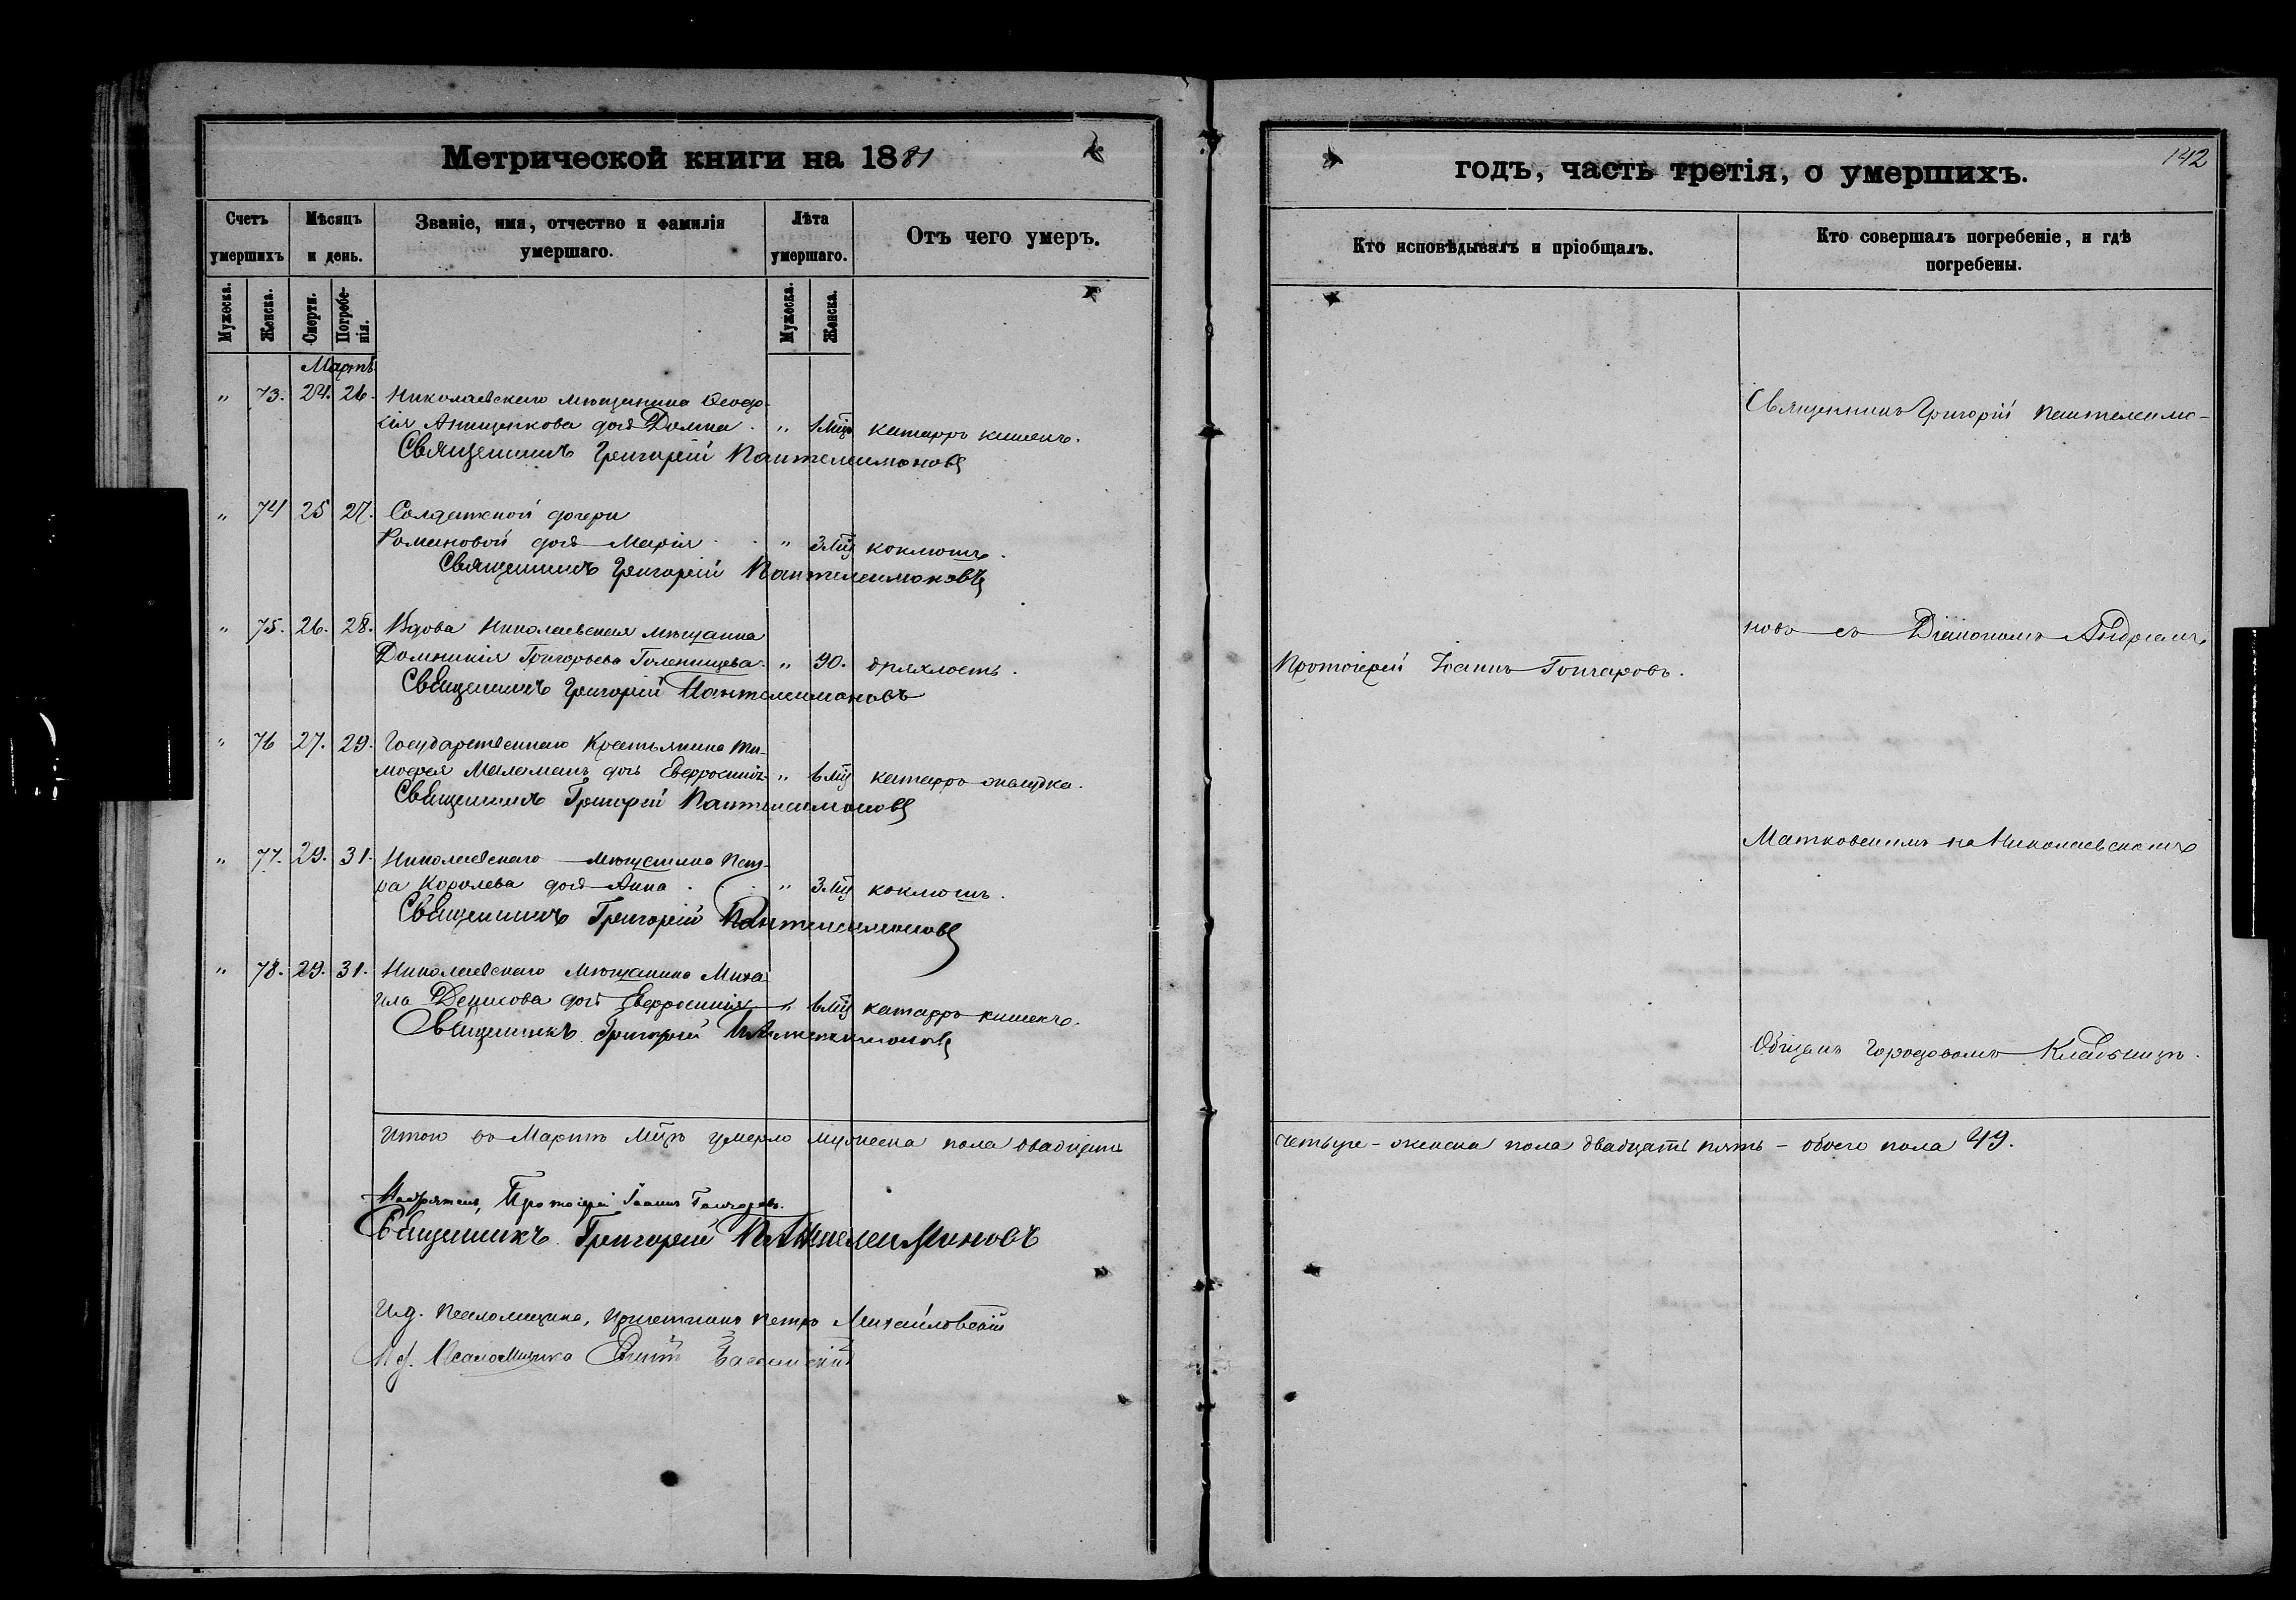 Метрической книги на 1881
годъ, часть третія, о умершихъ.
142
Счетъ умершихъ
Мѣсяцъ и день.
Званіе, имя, отчество и фамилія умершаго.
Лѣта умершаго.
Отъ чего умеръ.
Кто исповѣдывалъ и пріобщалъ.
Кто совершалъ погребеніе, и гдѣ погребены.
Мужеска. Женска. Смерти. Погребенія. Мужеска. Женска.
Мартъ
„ 73. 24. 26. Николаевскаго мѣщанина Ѳеодо-
сія Анищенкова дочь Домна „ 1 мѣц катарръ кишекъ.
Священникъ Григорій Пантелеимоновъ
Священникъ Григорій Пантелеимо-
„ 74 25 27. Солдатской дочери
Романовой дочь Марія „ 3 мц коклюшъ.
Священникъ Григорій Пантелеимоновъ
„ 75. 26. 28. Вдова Николаевская мѣщанка
Домникія Григорьева Голенищева „ 90. дряхлость.
Священникъ Григорій Пантелеимоновъ
Протоіерей Іоаннъ Гончаровъ.
новъ съ Діакономъ Андреемъ
„ 76 27. 29. Государственнаго Крестьянина Ти-
мофея Маламанъ дочь Евфросинія „ 6 мц катарръ желудка.
Священникъ Григорій Пантелеимоновъ
„ 77. 29. 31. Николаевскаго мѣщанина Пет-
ра Королева дочь Анна „ 3 мц коклюшъ.
Священникъ Григорій Пантелеимоновъ
Матковскимъ на Николаевскомъ
„ 78. 29. 31. Николаевскаго мѣщанина Миха
ила Денисова дочь Евфросинія „ 6 мц катарръ кишекъ.
Священникъ Григорій Пантелеимоновъ
Общемъ городовомъ Кладбищѣ.
Итого въ Мартѣ мцѣ умерло мужеска пола двадцать
четыре - женска пола двадцать пять - обоего пола 49.
Протоіерей Іоаннъ Гончаровъ.
Священникъ Григорій Пантелеимоновъ
И.д. псаломщика, причетникъ Петръ Михайловскій
И.д. Псаломщика